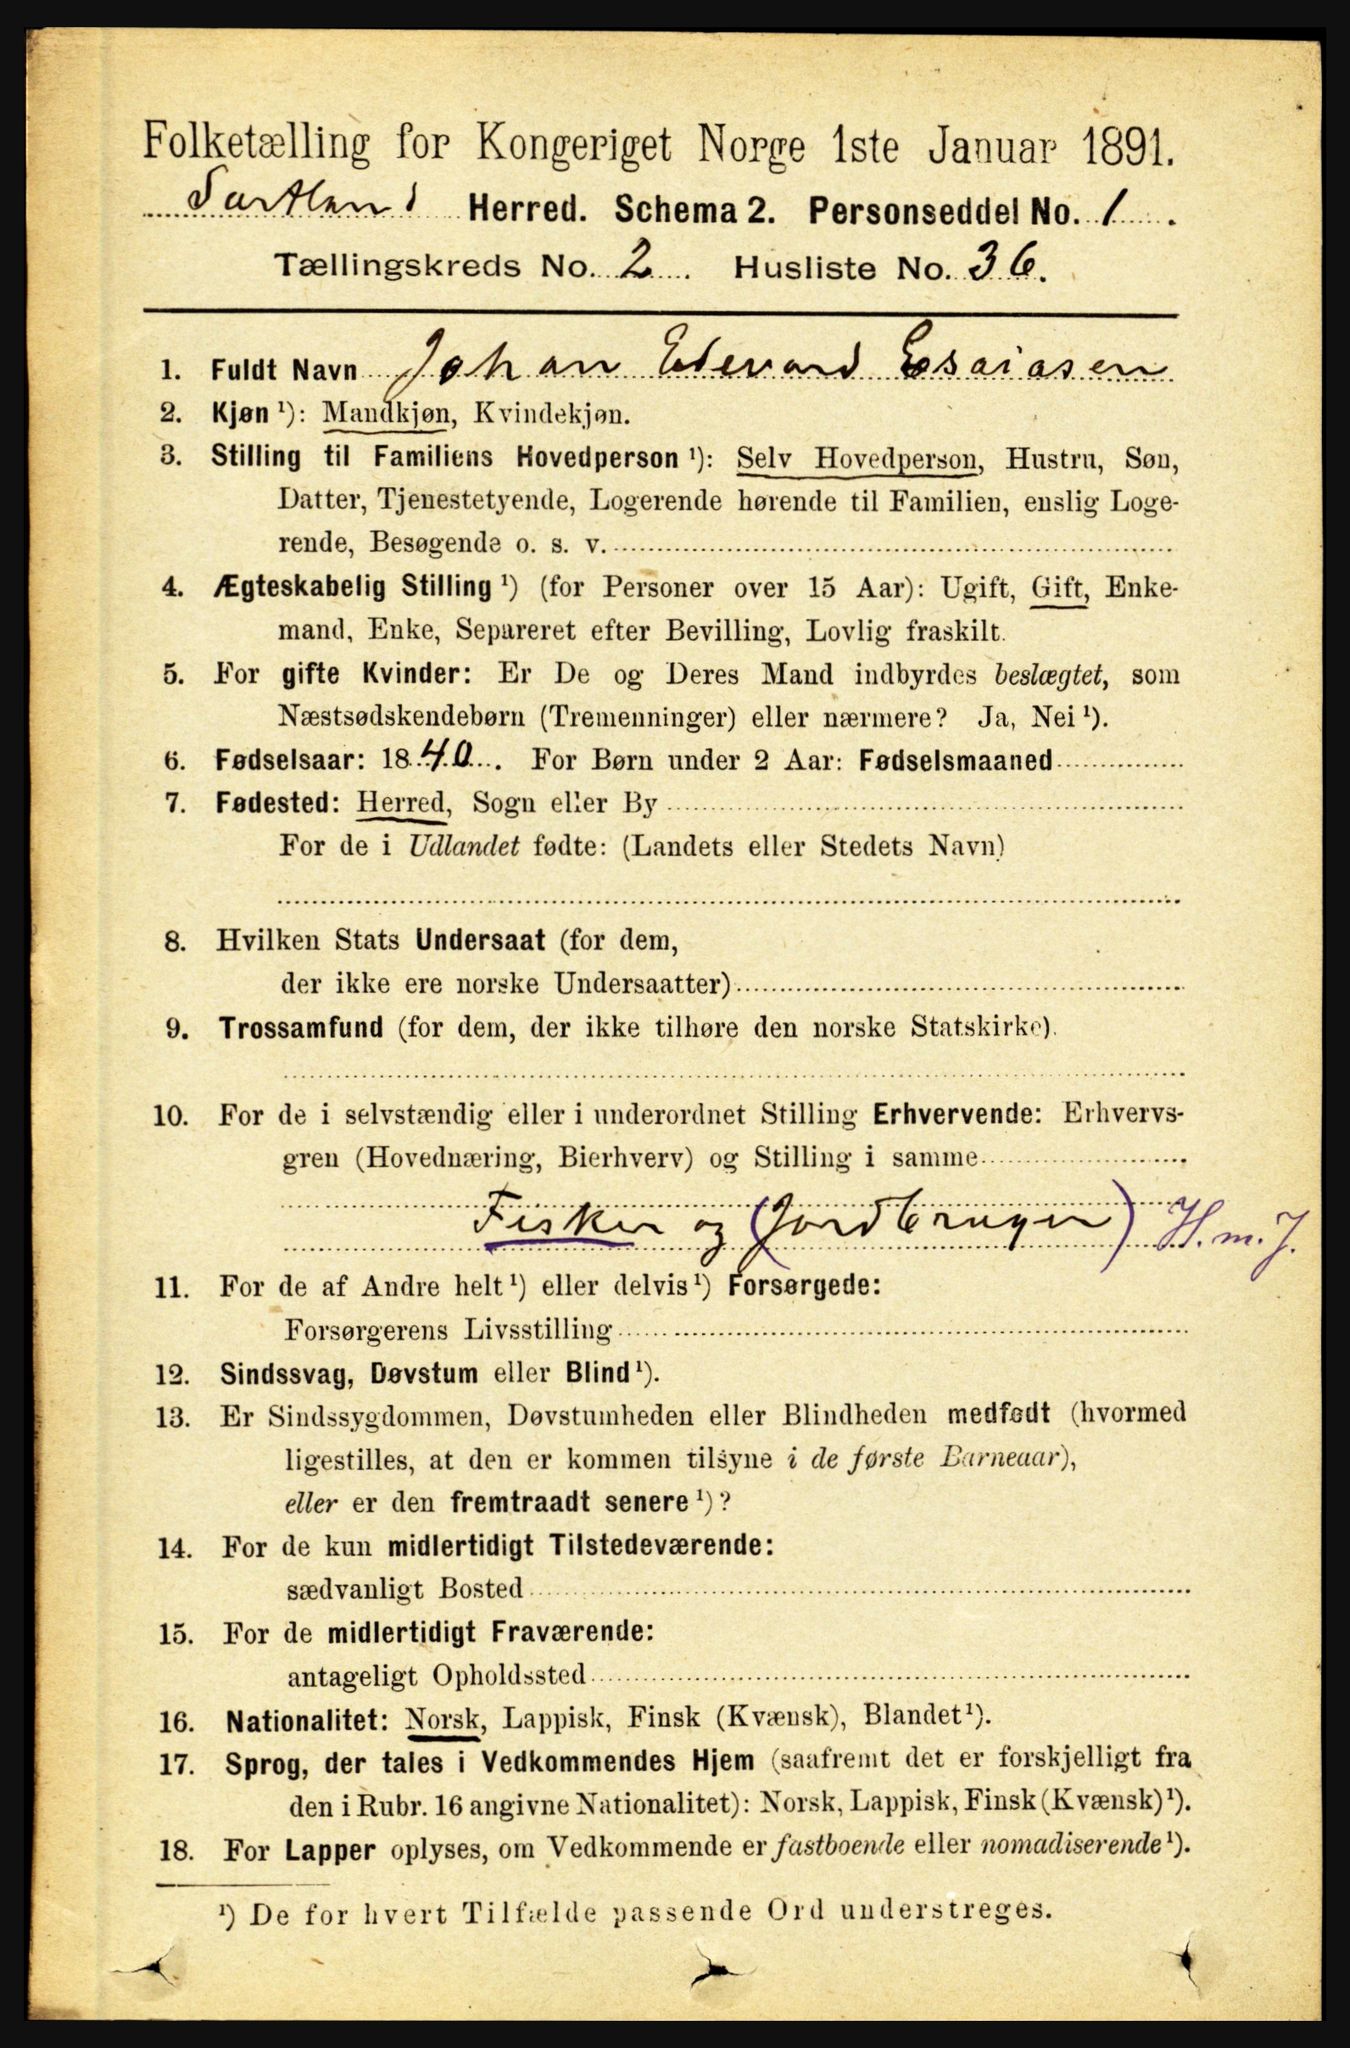 Folketælling for Kongeriget Norge 1ste Januar 1891.
Sortland Herred. Schema 2. Personseddel No. 1.
Tællingskreds No. 2. Husliste No. 36.
1. Fuldt Navn Johan Edevard Esaiasen
2. Kjøn ¹): Mandkjøn, Kvindekjøn.
3. Stilling til Familiens Hovedperson ¹): Selv Hovedperson, Hustru, Søn,
Datter, Tjenestetyende, Logerende hørende til Familien, enslig Loge-
rende, Besøgende o. s. v.
4. Ægteskabelig Stilling ¹) (for Personer over 15 Aar): Ugift, Gift, Enke-
mand, Enke, Separeret efter Bevilling, Lovlig fraskilt.
5. For gifte Kvinder: Er De og Deres Mand indbyrdes beslægtet, som
Næstsødskendebørn (Tremenninger) eller nærmere? Ja, Nei ¹).
6. Fødselsaar: 1840. For Børn under 2 Aar: Fødselsmaaned
7. Fødested: Herred, Sogn eller By
For de i Udlandet fødte: (Landets eller Stedets Navn)
8. Hvilken Stats Undersaat (for dem,
der ikke ere norske Undersaatter)
9. Trossamfund (for dem, der ikke tilhøre den norske Statskirke).
10. For de i selvstændig eller i underordnet Stilling Erhvervende: Erhvervs-
gren (Hovednæring, Bierhverv) og Stilling i samme
Fisker og (Jordbruger) H. m. J.
11. For de af Andre helt ¹) eller delvis ¹) Forsørgede:
Forsørgerens Livsstilling
12. Sindssvag, Døvstum eller Blind ¹).
13. Er Sindssygdommen, Døvstumheden eller Blindheden medfødt (hvormed
ligestilles, at den er kommen tilsyne i de første Barneaar),
eller er den fremtraadt senere ¹)?
14. For de kun midlertidigt Tilstedeværende:
sædvanligt Bosted
15. For de midlertidigt Fraværende:
antageligt Opholdssted
16. Nationalitet: Norsk, Lappisk, Finsk (Kvænsk), Blandet ¹).
17. Sprog, der tales i Vedkommendes Hjem (saafremt det er forskjelligt fra
den i Rubr. 16 angivne Nationalitet): Norsk, Lappisk, Finsk (Kvænsk) ¹).
18. For Lapper oplyses, om Vedkommende er fastboende eller nomadiserende ¹).
¹) De for hvert Tilfælde passende Ord understreges.